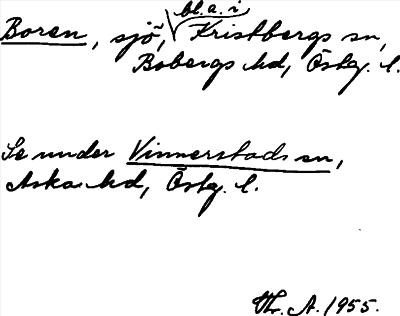 bl. a. i
Boren, sjö, Kristbergs sn,
Bobergs hd, Östg. l.
Se under Vinnerstads sn,
Aska hd, Östg. l.
A. 1955.